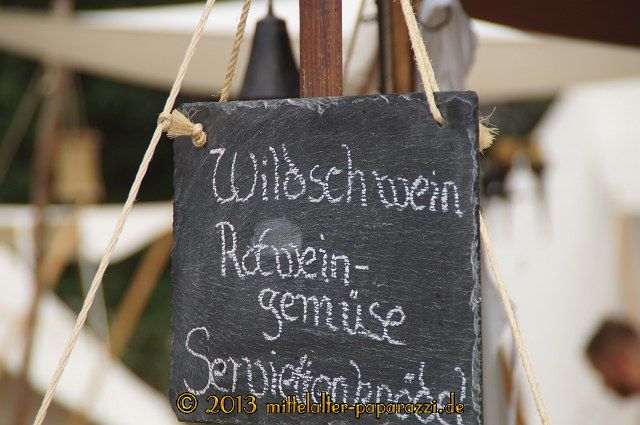 Wildschwein
Rotwein-
gemüse
Serviettenknödel
© 2013 mittelalter-paparazzi.de